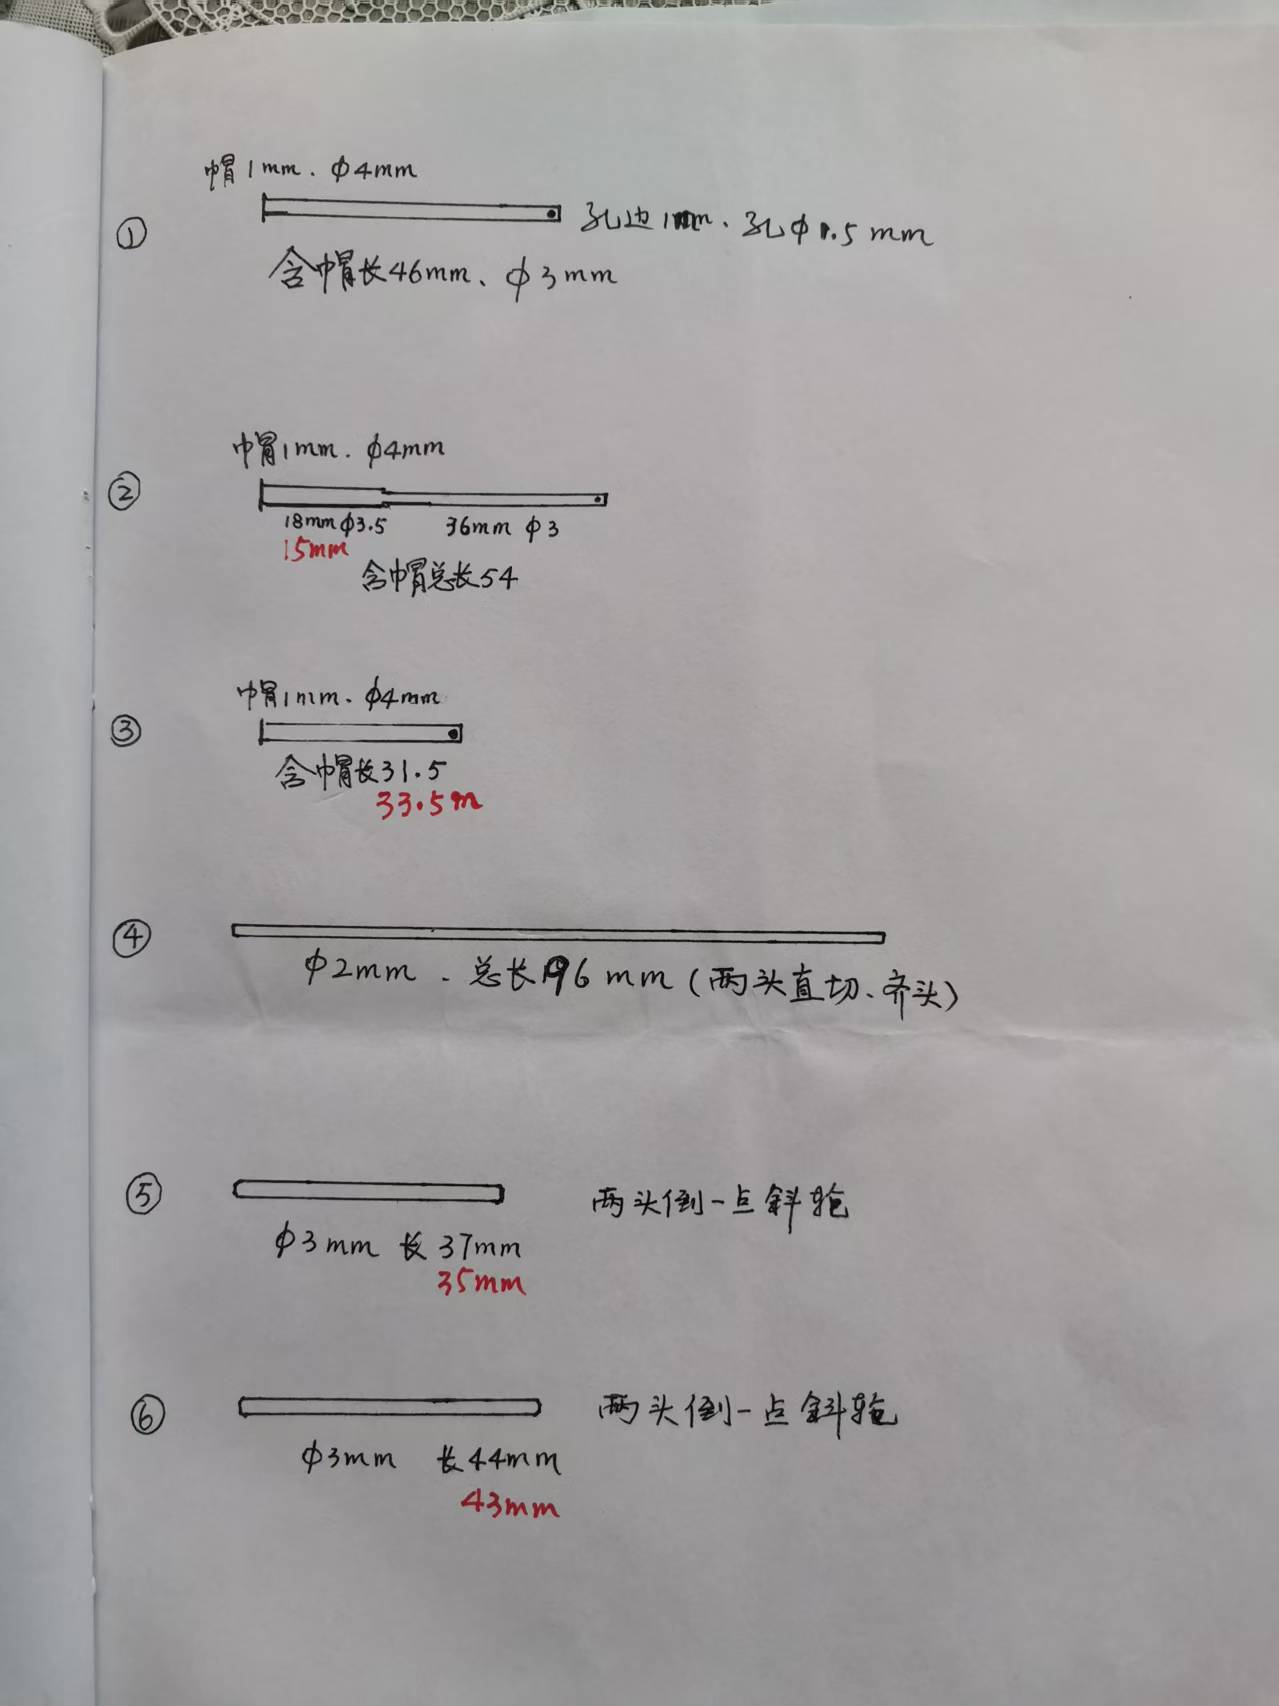 帽1mm、ф4mm
① 孔边1mm、孔ф1.5mm
含帽长46mm、ф3mm
帽1mm、ф4mm
②
18mmф3.5 36mm ф3
15mm
含帽总长54
帽1mm、ф4mm
③
含帽长31.5
33.5m
④
ф2mm、总长196mm(两头直切、齐头)
⑤ 两头倒一点斜
ф3mm 长37mm
35mm
⑥ 两头倒一点斜
ф3mm 长44mm
43mm